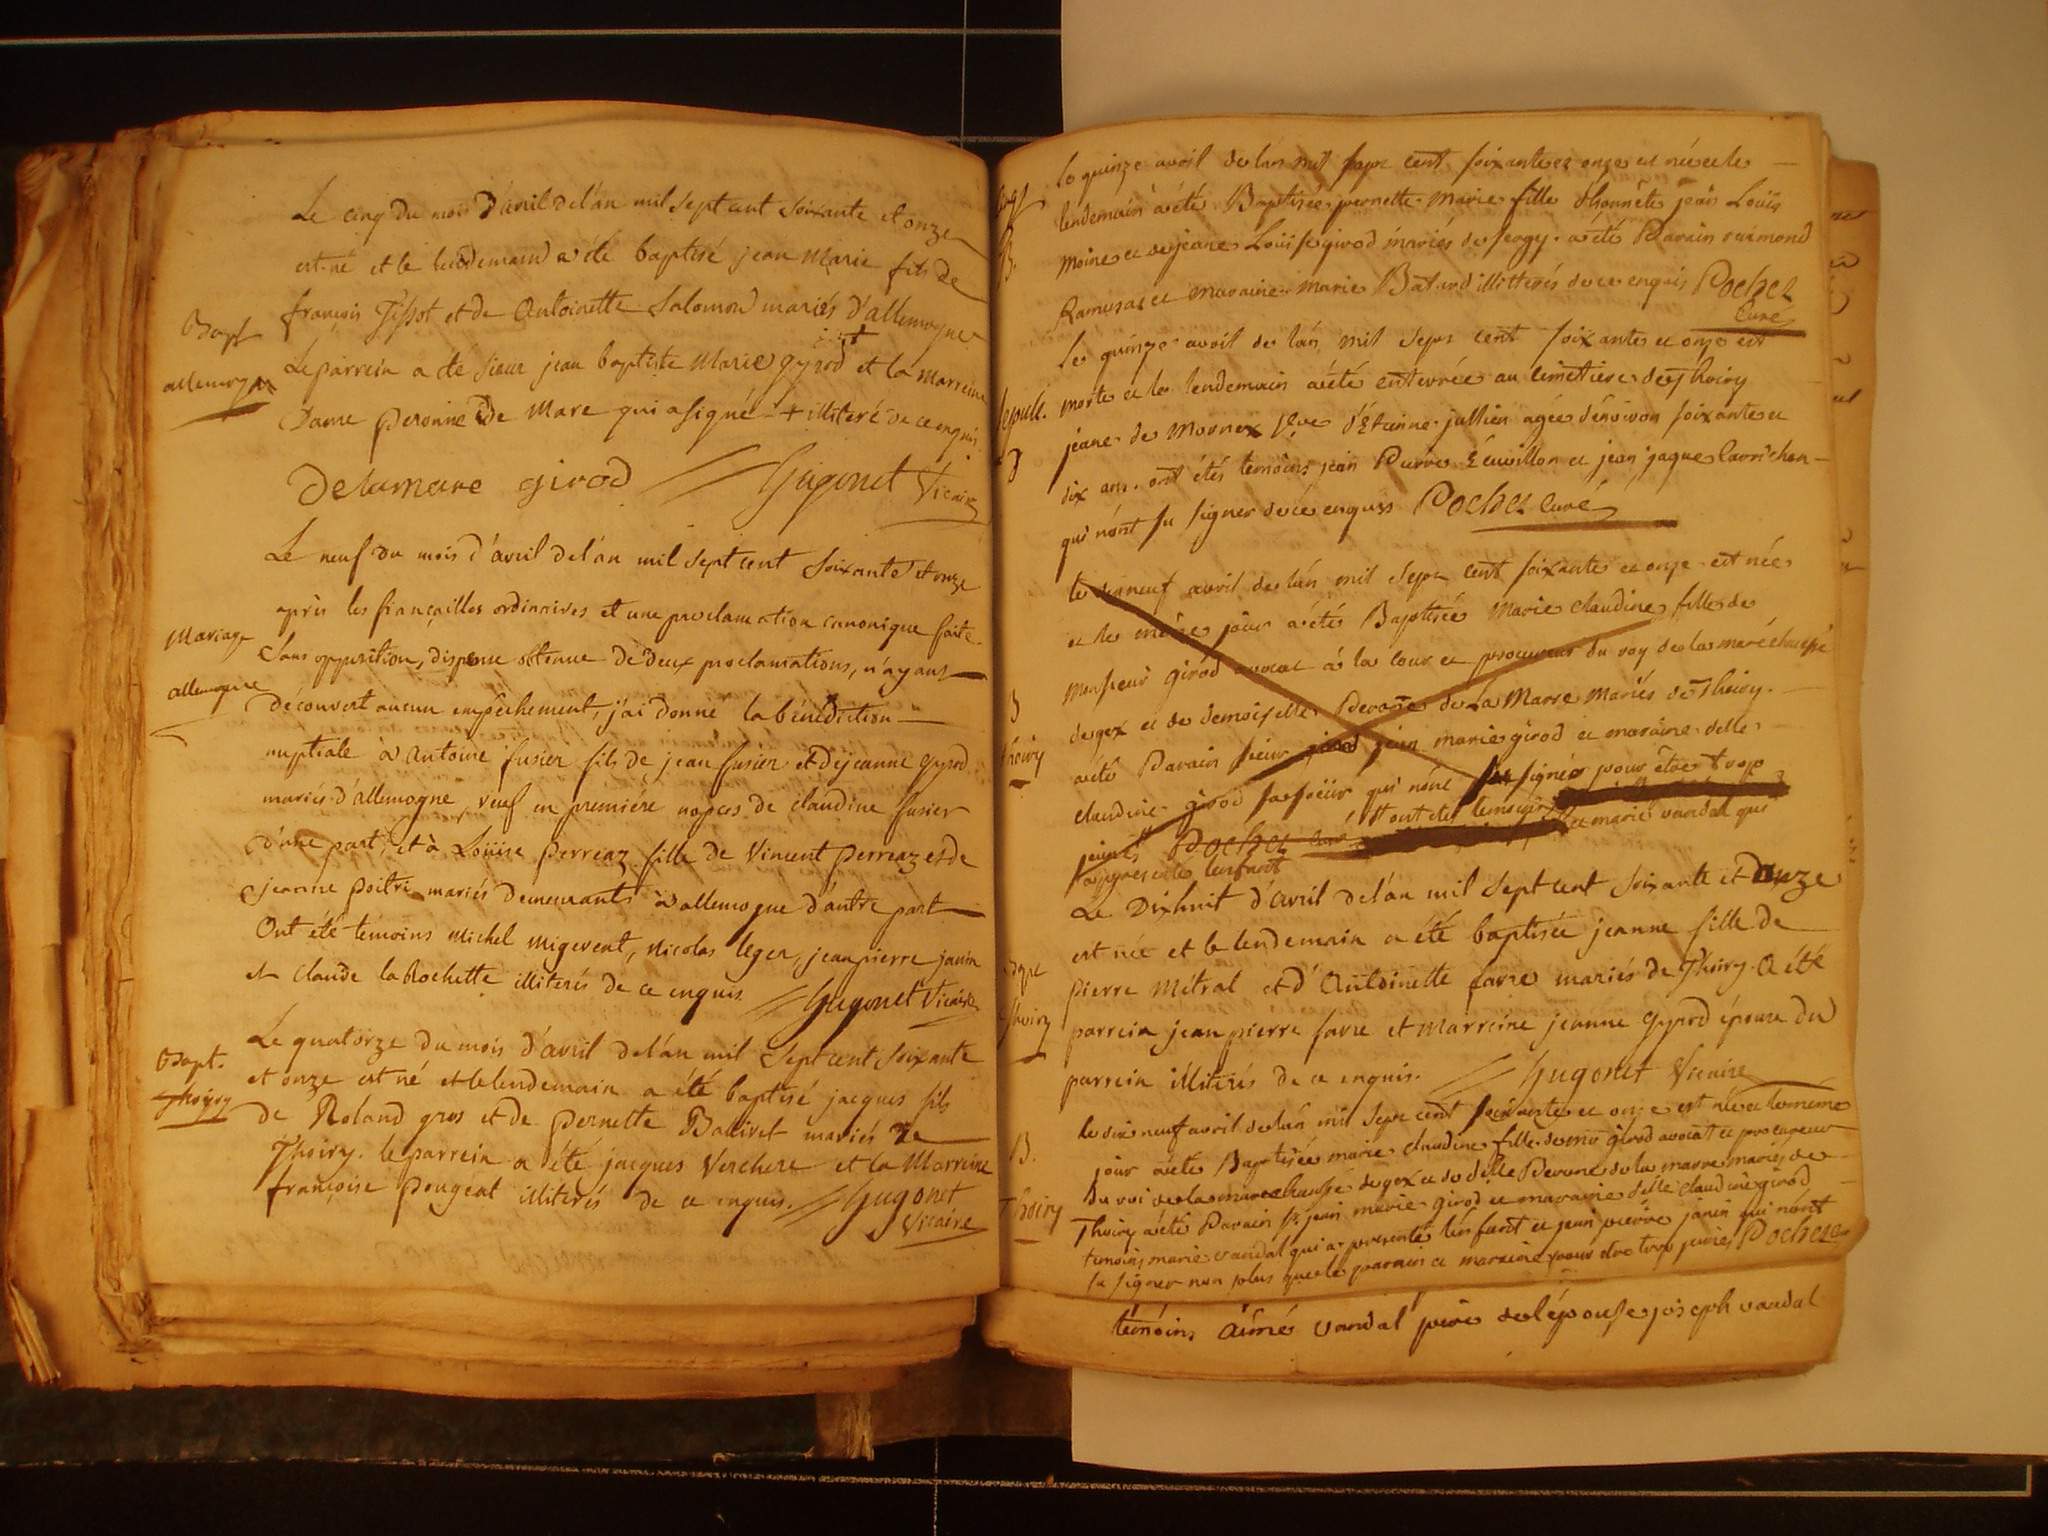 Le cinq du mois d'avril del'an mil sept cent soixante et onze
est né et le lendemain a été baptisé jean Marie fils de
françois Tissot et de Antoinette Salomon mariés d'allemogne
Bapt
allemogne
Le parrein a été sieur jean baptiste Marie gyrod + et la marreine
Dame peronne De Mare qui a signé + illiteré de ce enquis
Delamare girod Hugonet Vicaire
Le neuf du mois d'avril del'an mil sept cent soixante et onze
après les fiançailles ordinaires et une proclamation canonique faite
Mariage
allemogne
sans opposition, dispense obtenue de deux proclamations, n'ayant
découvert aucun empêchement, j'ai donné la bénédiction
nuptiale à Antoine fusier fils de jean fusier et de jeanne gyrod
mariés d'allemogne, veuf en première nopces de claudine fusier
d'une part, et à Loüise perreaz fille de Vincent perreaz et de
jeanne poitri mariés demeurants à allemogne d'autre part
Ont été temoins michel migevent, nicolas leger, jean pierre janin
et claude la Rochette illiterés de ce enquis Hugonet Vicaire
Bapt.
Thoiry
Le quatorze du mois d'avril del'an mil sept cent soixante
et onze est né et le lendemain a été baptisé jacques fils
de Roland gros et de pernette Balivet mariés de
Thoiry. le parrein a été jacques Verchere et la Marreine
françoise pougeat illiterés de ce enquis. Hugonet
Vicaire
le quinze avril de lan mil sept cent soixante et onze et née et le
lendemain a été Baptisée pernette marie fille d'honnête jean Loüis
B.
moine et de jeane Loüise girod mariés de sergy. a été Parain raimond
Ramusat et maraine marie Batard illitterés de ce enquis Pochet
Curé
le quinze avril de lan mil sept cent soixante et onze est
sepult.
morte et le lendemain a été enterrée au cimetiere de Thoiry
jeane de Mornex vve d'Etienne jullien agée d'environ soixante et
dix ans. ont étés temoins jean Pierre Ecuvillon et jean jaque
qui n'ont su signer de ce enquis Pochet Curé
le dix neuf avril de lan mil sept cent soixante et onze est née
et le même jour a été Baptisée Marie claudine fille de
monsieur girod avocat à la cour et procureur du roy de la maréchaussé
B
thoiry
de gex et de demoiselle Perone de La Marre Mariés de Thoiry.
a été Parain sieur girod jean marie girod et maraine delle
claudine girod sa soeur qui nont signé pour être trop
jeunes Pochet Curé ont été temoins et marie vandal qui
a presenté lenfant
Le Dixhuit d'avril del'an mil sept cent soixante et onze
est née et le lendemain a été baptisée jeanne fille de
Thoiry
pierre Métral et d'Antoinette favre mariés de Thoiry. a été
parrein jean pierre favre et marreine jeanne gyrod épouse du
parrein illiterés de ce enquis. Hugonet Vicaire
B.
Thoiry
le dix neuf avril de lan mil sept cent soixante et onze est née et le meme
jour a été Baptisée marie claudine fille de mr girod avocat et procureur
du roi de la marechaussé de gex et de delle Perone de la marre mariés de
Thoiry a été Parain sr jean marie girod et maraine delle claudine girod
temoins marie vandal qui a presenté lenfant et jean pierre janin qui n'ont
su signer non plus que le parain et maraine pour etre trop jeunes Pochet
temoins aimé vandal pere de l'épouse joseph vandal